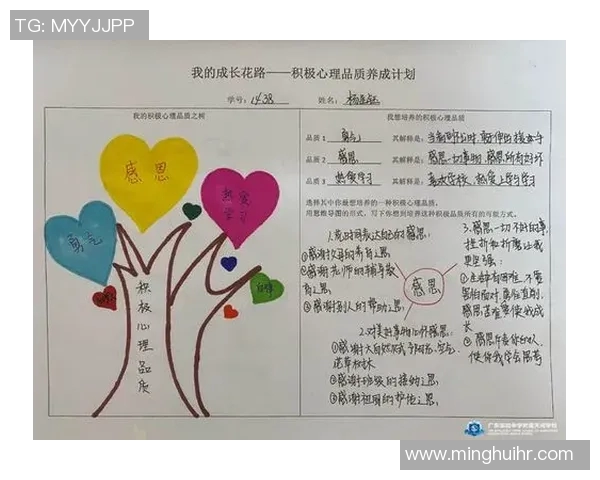 TG: MYYJJPP
我的成长花路——积极心理品质养成计划
学号: 1438 姓名:
我的积极心理品质之树
感恩
热爱
学习
勇气
积极心理品质
我想培养的积极心理品质
品质 1 勇气 其解释是:
品质 2 感恩 其解释是: 感恩一切事物,感恩所有好坏
品质 3 热爱学习 其解释是: 喜欢学校,热爱上学与学习
选择其中你最想培养的一种积极心理品质,
用思维导图的形式,写下你想到培养这种积极品质所有的可能方式。
1.及时用表达内心的感恩:
①感谢父母的养育之恩
②感谢老师的辅导教
育之恩
③感谢别人的帮助之恩
感恩
2.对美好事物心怀感恩:
①感谢大自然赋予阳光、空气、
花草树木
②感谢班级的接纳之恩
③感谢祖国的护佑之恩
3.感恩一切不好的事,
挫折和折磨让我
更坚强:
①生活中有困难,不要
害怕面对,勇往直前,
感恩苦难要使我成
长
使你我学会思考
www.minghuihr.com